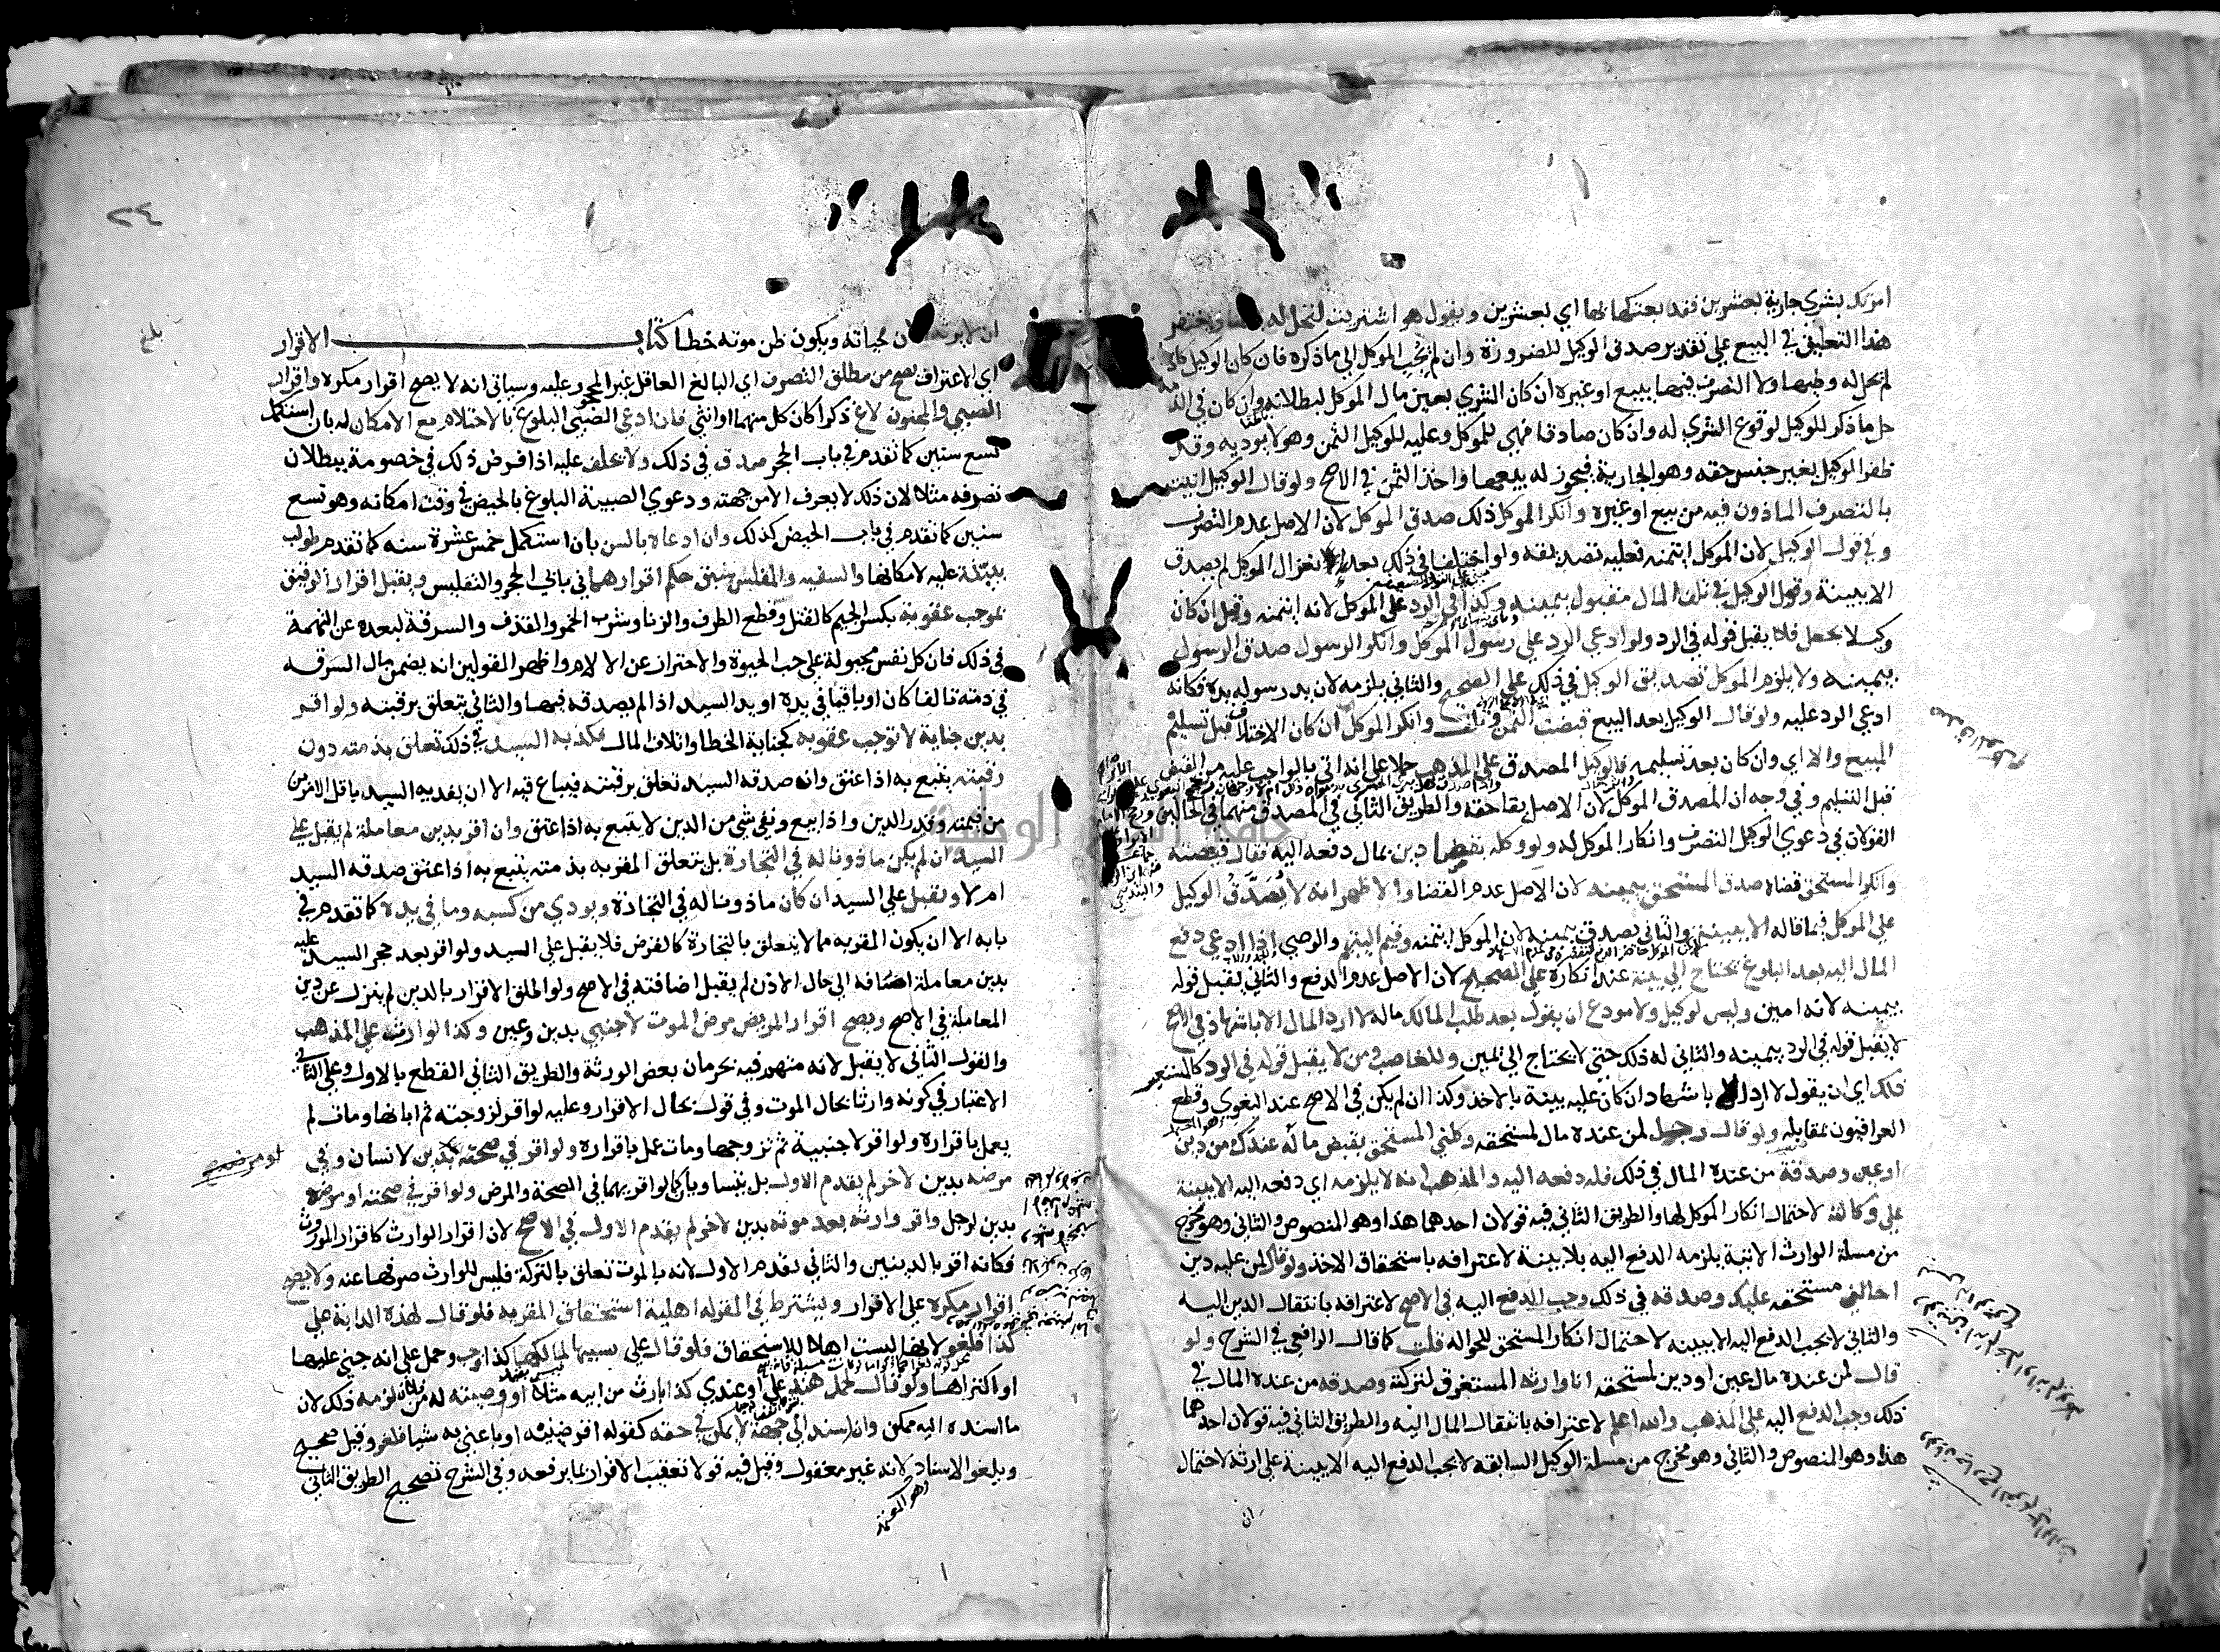 امرتك بشري جارية بعشرين فقد بعتكها بها اي بعشرين ويقول هو اشتريت لتحل له
هذا التعليق في البيع علي تقدير صدق الوكيل للضرورة وان لم يجب الموكل الي ما ذكره فان كان الوكيل كاذبا
لم يحل له وطيها ولا التصرف فيها ببيع او غيره ان كان الشري بعين مال الموكل لبطلانه وان كان في الذمة
حل ما ذكر للوكيل لوقوع الشري له وان كان صادقا فهي للموكل وعليه للوكيل الثمن وهو لا يوديه وقد
ظفر الوكيل بغير جنس حقه وهو الجارية فيجوز له بيعها واخذ الثمن في الاصح ولو قال الوكيل اتيت
بالتصرف الماذون فيه من بيع او غيره وانكر الموكل ذلك صدق الموكل لان الاصل عدم التصرف
وفي قول الوكيل لان الموكل ائتمنه فعليه تصديقه ولو اختلفا في ذلك بعد انعزال الوكيل لم يصدق
الا ببينة وقول الوكيل في تلف المال مقبول بيمينه وكذا في الرد علي الموكل لانه ائتمنه وقيل ان كان
وكيلا بجعل فلا يقبل قوله في الرد ولو ادعي الرد علي رسول الموكل وانكر الرسول صدق الرسول
بيمينه ولا يلزم الموكل تصديق الوكيل في ذلك علي الصحيح والثاني يلزمه لان يد رسوله يده فكانه
ادعي الرد عليه ولو قال الوكيل بعد البيع قبضت الثمن وتلف وانكر الموكل ان كان الاختلاف قبل تسليم
المبيع والا اي وان كان بعد تسليمه فالوكيل المصدق علي المذهب حملا علي انه اتي بالواجب عليه من القبض
قبل التسليم وفي وجه ان المصدق الموكل لان الاصل بقا حقه والطريق الثاني في المصدق منهما في الحالين
القولان في دعوي الوكيل التصرف وانكار الموكل له ولو وكله بقضا دين بمال دفعه اليه فقال قضيته
وانكر المستحق قضاه صدق المستحق بيمينه لان الاصل عدم القضا والاظهر انه لا يُصَدَّق الوكيل
علي الموكل فيما قاله الا ببينة والثاني يصدق بيمينه لان الموكل ائتمنه وقيم اليتيم والوصي اذا ادعي دفع
المال اليه بعد البلوغ يحتاج الي بينة عند انكاره علي الصحيح لان الاصل عدم الدفع والثاني يقبل قوله
بيمينه لانه امين وليس لوكيل ولا مودع ان يقول بعد طلب المالك ماله لا ارد المال الا باشهاد في الاصح
لانه يقبل قوله في الرد بيمينه والثاني له ذلك حتي لا يحتاج الي يمين وللغاصب ومن لا يقبل قوله في الرد كالمستعير
ذلك اي ان يقول لا ارد الا باشهاد ان كان عليه بينة بالاخذ وكذا ان لم يكن في الاصح عند البغوي وقطع
العراقيون بمقابله ولو قال رجل لمن عنده مال لمستحقه وكلني المستحق بقبض ما له عندك من دين
او عين وصدقة من عنده المال في ذلك فله دفعه اليه والمذهب انه لا يلزمه اي دفعه اليه الا ببينة
علي وكالته لاحتمال انكار الموكل لها والطريق الثاني فيه قولان احدهما هذا وهو المنصوص والثاني وهو مخرج
من مسلة الوارث الاتية يلزمه الدفع اليه بلا بينة لاعترافه باستحقاق الاخذ ولو قال لمن عليه دين
احالني مستحقه عليك وصدقه في ذلك وجب الدفع اليه في الاصح لاعترافه بانتقال الدين اليه
والثاني لا يجب الدفع اليه الا ببينه لاحتمال انكار المستحق للحوالة قلت كما قال الرافعي في الشرح ولو
قال لمن عنده مال عين او دين لمستحقه انا وارثه المستغرق لتركته وصدقه من عنده المال في
ذلك وجب الدفع اليه علي المذهب والله اعلم لاعترافه بانتقال المال اليه والطريق الثاني فيه قولان احدهما
هذا وهو المنصوص والثاني وهو مخرج من مسلة الوكيل السابقه لا يجب الدفع اليه الا ببينة علي ارثه لاحتمال
ان
٢٤
بلغ
ان لا يرثه الان لحياته ويكون ظن موته خطا كتاب الاقرار
اي الاعتراف يصح من مطلق التصرف اي البالغ العاقل غير المحجور عليه وسياتي انه لا يصح اقرار مكره واقرار
الصبي والمجنون لاغ ذكرا كان كل منهما او انثي فان ادعي الصبي البلوغ بالاحتلام مع الامكان له بان استكمل
تسع سنين كما تقدم في باب الحجر صدق في ذلك ولا يحلف عليه اذا فرض ذلك في خصومة ببطلان
تصرفه مثلا لان ذلك لا يعرف الا من جهته ودعوي الصبية البلوغ بالحيض في وقت امكانه وهو تسع
سنين كما تقدم في باب الحيض كذلك وان ادعاه بالسن بان استكمل خمس عشرة سنه كما تقدم طولب
ببينة عليه لامكانها والسفيه والمفلس سبق حكم اقرارهما في بابي الحجر والتفليس ويقبل اقرار الرقيق
بموجب عقوبة بكسر الجيم كالقتل وقطع الطرف والزنا وشرب الخمر والقذف والسرقة لبعده عن التهمة
في ذلك فان كل نفس مجبولة علي حب الحيوة والاحتراز عن الالام واظهر القولين انه يضمن مال السرقه
في ذمته تالفا كان او باقيا في يده او يد السيد اذا لم يصدقه فيها والثاني يتعلق برقبته ولو اقر
بدين جناية لا توجب عقوبه كجناية الخطا واتلاف المال فكذبه السيد في ذلك تعلق بذمته دون
رقبته يتبع به اذا عتق وان صدقه السيد تعلق برقبته فيباع فيه الا ان يفديه السيد باقل الامرين
من قيمته وقدر الدين واذا بيع وبقي شي من الدين لا يتبع به اذا عتق وان اقر بدين معاملة لم يقبل علي
السيد ان لم يكن ماذونا له في التجارة بل يتعلق المقر به بذمته يتبع به اذا عتق صدقه السيد
ام لا ويقبل علي السيد ان كان ماذونا له في التجارة ويودي من كسبه وما في يده كما تقدم في
بابه الا ان يكون المقر به مما لا يتعلق بالتجارة كالقرض فلا يقبل علي السيد ولو اقر بعد حجر السيد عليه
بدين معاملة اضافه الي حال الاذن لم يقبل اضافته في الاصح ولو اطلق الاقرار بالدين لم ينزل عن دين
المعاملة في الاصح ويصح اقرار المريض مرض الموت لاجنبي بدين وعين وكذا الوارث علي المذهب
والقول الثاني لا يقبل لانه متهم فيه بحرمان بعض الورثة والطريق الثاني القطع بالاول وعلي الثاني
الاعتبار في كونه وارثا بحال الموت وفي قول بحال الاقرار وعليه لو اقر لزوجته ثم ابانها ومات لم
يعمل باقراره ولو اقر لاجنبية ثم تزوجها ومات عمل باقراره ولو اقر في صحته بدين لانسان وفي
مرضه بدين لاخر لم يقدم الاول بل يتساويان كما لو اقر بهما في الصحة والمرض ولو اقر في صحته او مرضه
بدين لرجل واقر وارثه بعد موته بدين لاخر لم يقدم الاول في الاصح لان اقرار الوارث كاقرار المورث
فكانه اقر بالدينين والثاني يقدم الاول لانه بالموت تعلق بالتركة فليس للوارث صرفها عنه ولا يصح
اقرار مكره علي الاقرار ويشترط في المقر له اهلية استحقاق المقر به فلو قال لهذه الدابة علي
كذا فلغو لانها ليست اهلا للاستحقاق فلو قال علي بسببها لمالكها كذا وجب وحمل علي انه جني عليها
او اكتراها ولو قال لحمل هند علي او عندي كذا بارث من ابيه مثلا او وصيته له من فلان لزمه ذلك لان
ما اسنده اليه ممكن وان اسند الي جهة لا يمكن في حقه كقوله اقرضنيه او باعني به شيا فلغو وقيل صحيح
ويلغو الاسناد لانه غير معقول وقيل فيه قولا تعقيب الاقرار بما يرفعه وفي الشرح تصحيح الطريق الثاني
وهو المعتمد
او مرضه